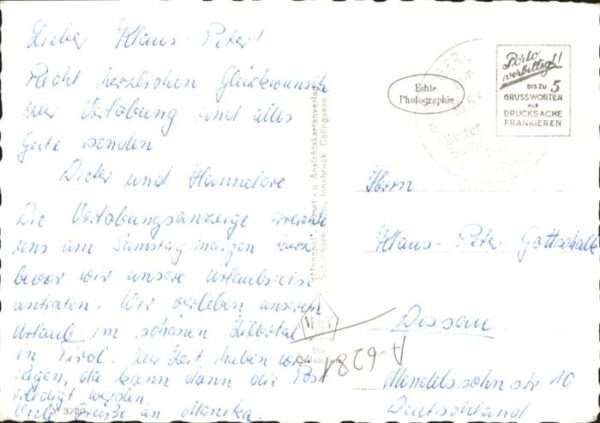 Lieber Klaus-Peter!
Recht herzlichen Glückwunsch
zur Verlobung und alles
Gute senden
Dieter und Hannelore
Die Verlobungsanzeige erreichte
uns am Samstag morgen kurz
bevor wir unsere Urlaubsreise
antraten. Wir verleben unseren
Urlaub im schönen Zillertal
in Tirol. Zur Zeit haben wir
Regen, da kann dann die Post
erledigt werden.
Viele Grüße an Monika.
Echte
Photographie
Porto
verbilligt!
BIS ZU 5
GRUSSWORTEN
ALS
DRUCKSACHE
FRANKIEREN
Herrn
Klaus-Peter Gottschalk
Dessau
Mendelssohnstr 10
Deutschland
A-6281